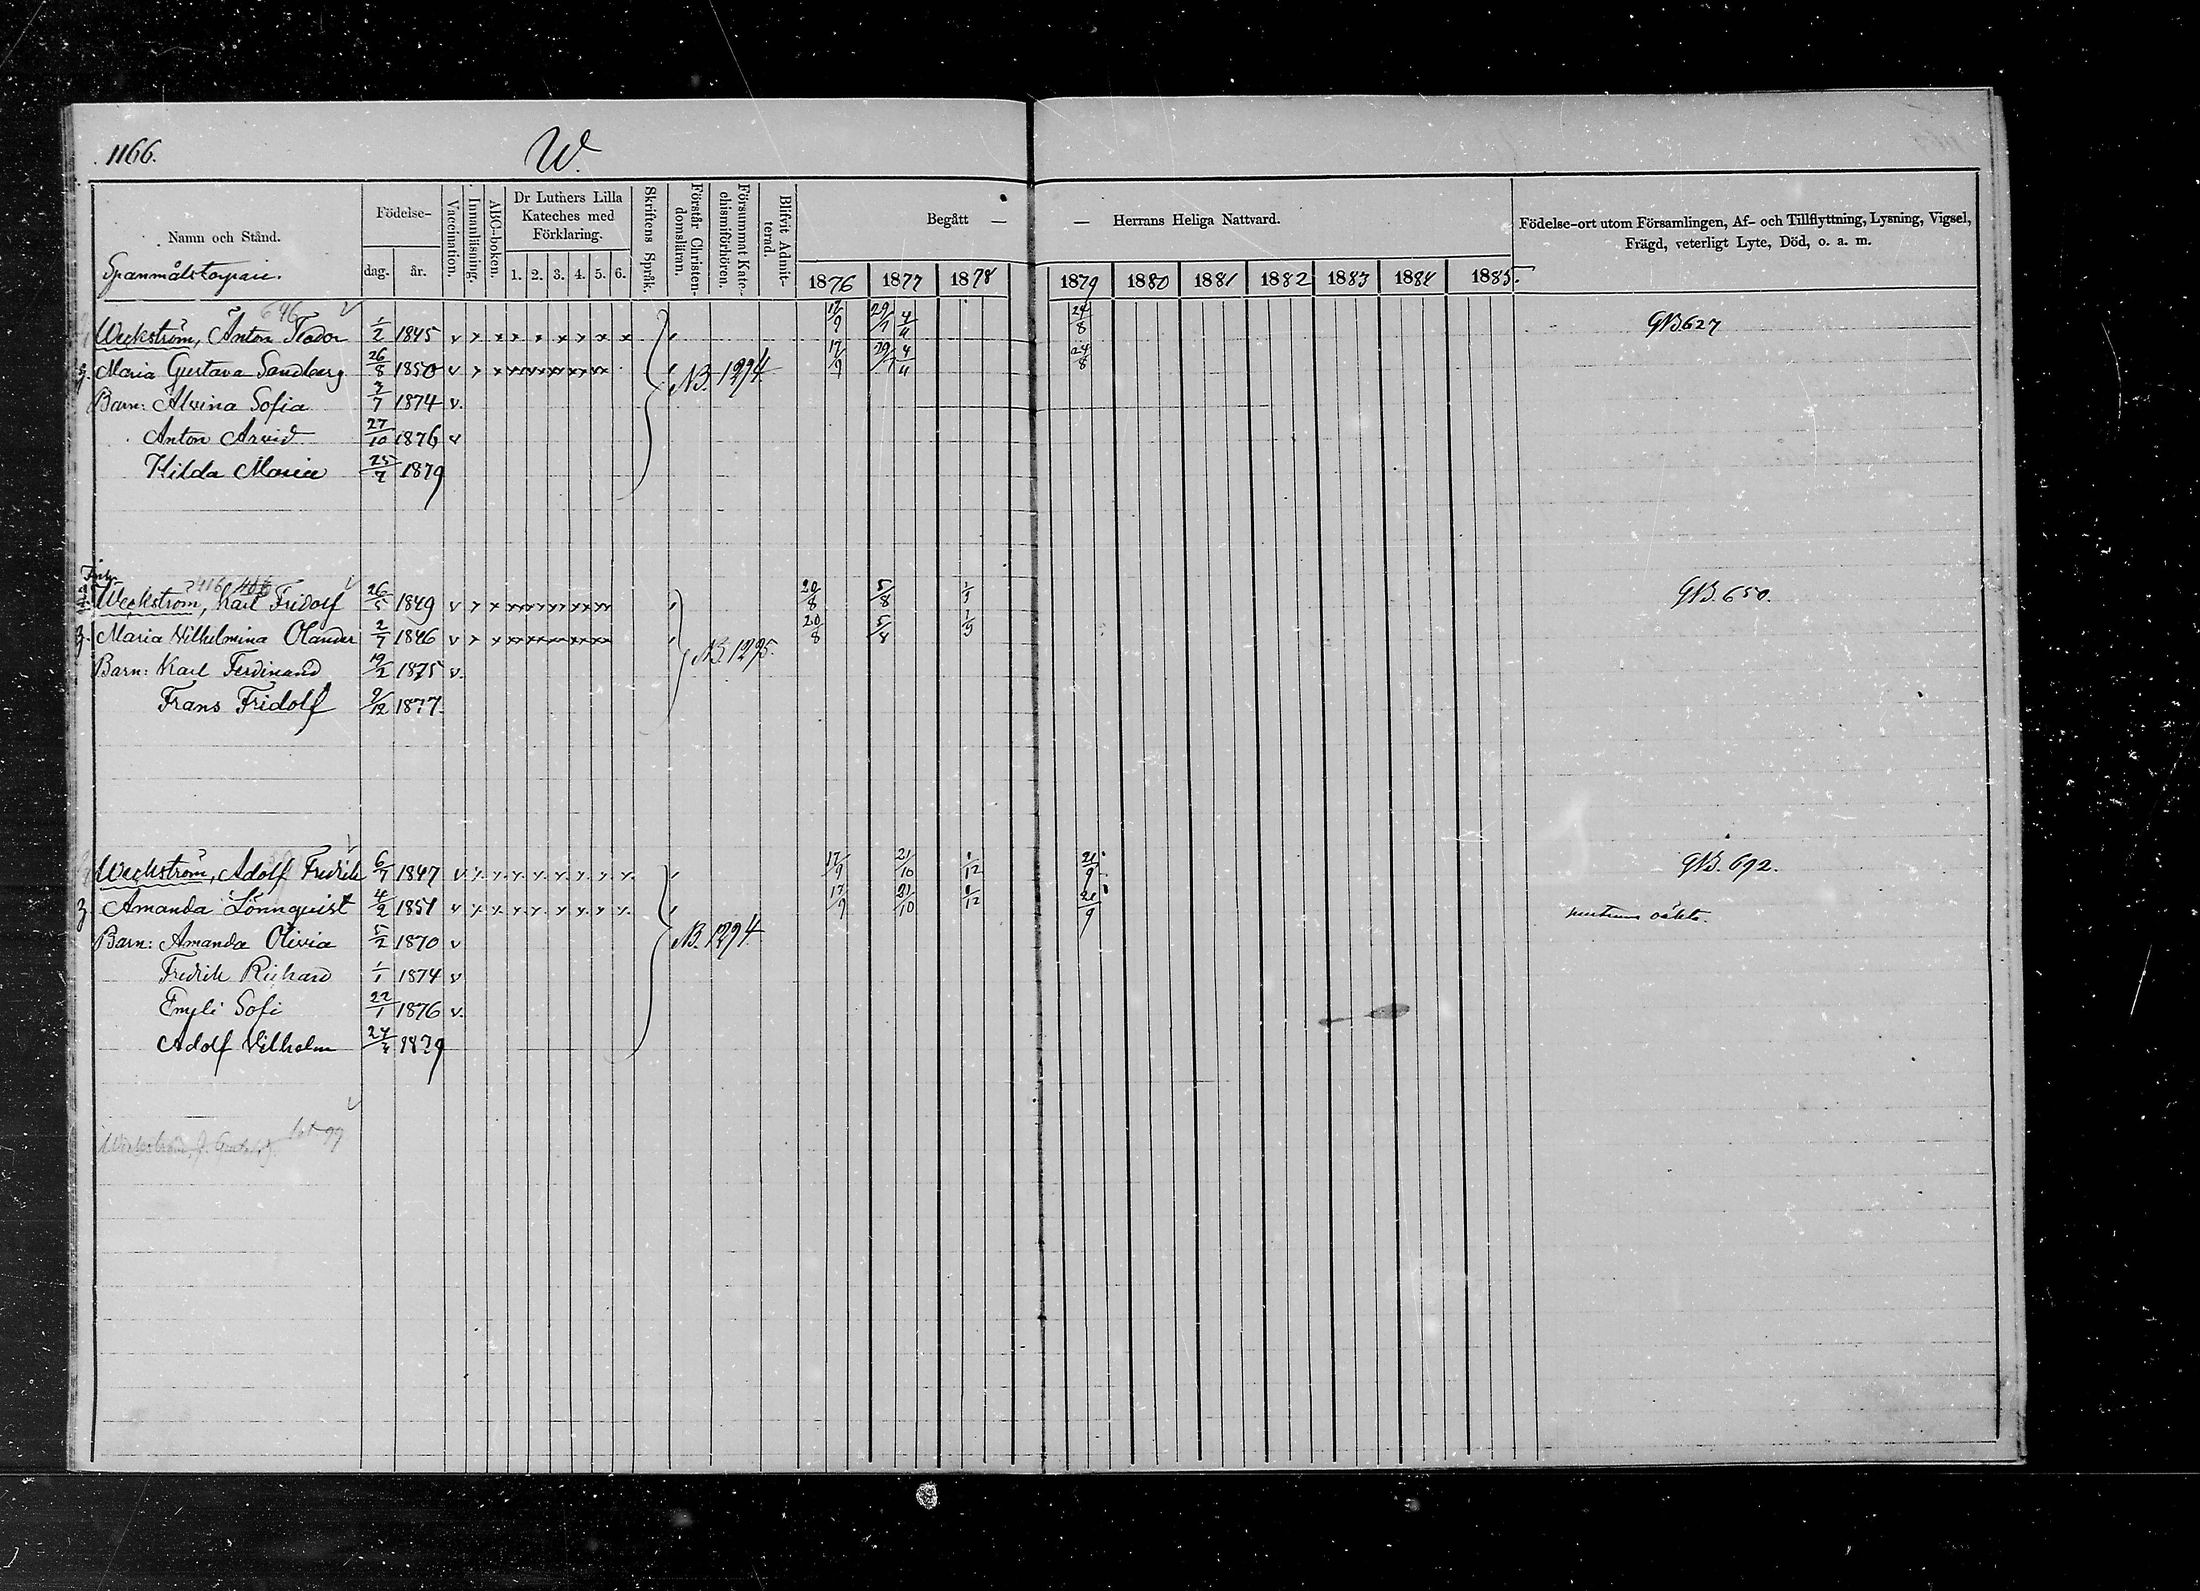 1166.
W.
Namn och Stånd.
Födelse-
dag.
år.
Vaccination.
Innanläsning.
ABC-boken.
Dr Luthers Lilla
Kateches med
Förklaring.
1. 2. 3. 4. 5. 6.
Skriftens Språk.
Förstår Christen-
domsläran.
Försummat Kate-
chismiförhören.
Blifvit Admit-
terad.
Begått — — Herrans Heliga Nattvard.
1876 1877 1878 1879 1880 1881 1882 1883 1884 1885.
Födelse-ort utom Församlingen, Af- och Tillflyttning, Lysning, Vigsel,
Frägd, veterligt Lyte, Död, o. a. m.
646
Weckström, Anton Teodor 1/2 1845 v 17/9 29/7 4/11 24/8 GB 627
Maria Gustava Sandberg 26/8 1850 v 17/9 29/7 4/11 24/8
NB. 1294.
Barn: Alvina Sofia 3/7 1874 v.
Anton Arvid 27/10 1876 v
Hilda Maria 25/7 1879
416
Weckström, Karl Fridolf 26/5 1849 v 20/8 5/8 1/9 GB. 650.
Maria Vilhelmina Olander 2/7 1846 v 20/8 5/8 1/9
NB. 1295.
Barn: Karl Ferdinand 19/2 1875 v.
Frans Fridolf 9/12 1877.
Weckström, Adolf Fredrik 6/7 1847 v 17/9 21/10 1/12 21/9 GB. 692.
Amanda Lönnquist 4/2 1851 v 17/9 21/10 1/12 21/9
NB. 1294
Barn: Amanda Olivia 5/2 1870 v
Fredrik Richard 1/1 1874 v
Emyli Sofi 22/1 1876 v.
Adolf Vilhelm 24/4 1879